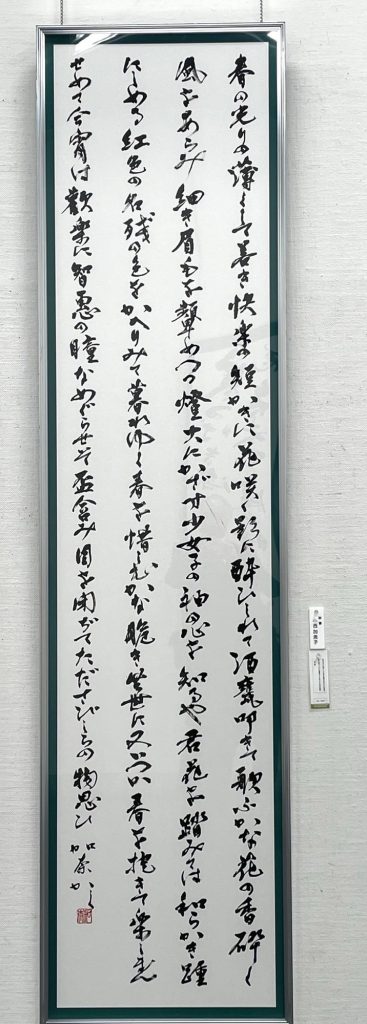 春の光の薄くして若き快楽の短かきに花咲く影に酔ひしれて酒甕叩きて歌ふかな花の香砕く
風をあらみ細き眉毛を顰めつつ燈火にかざす少女子の袖の心を知るや君花を踏みては和らかき踵
にしめる紅色の名残の色をかへりみて暮れゆく春を惜しむかな脆き世に又いつか春を抱きて楽しま
せめて今宵は歓楽に智恵の瞳をめぐらせて盃含み目を閉ぢてただすびらの物思ひ